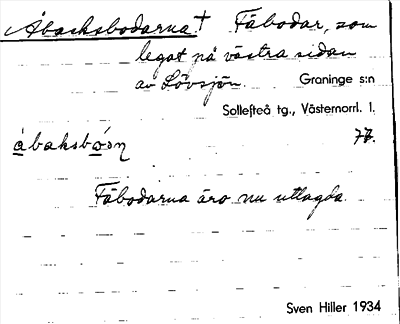 Åbacksbodarna † Fäbodar, som
legat på västra sidan
av Lövsjön. Graninge s:n
Sollefteå tg., Västernorrl. l.
åbaksbóɷn 77.
Fäbodarna äro nu utlagda.
Sven Hiller 1934